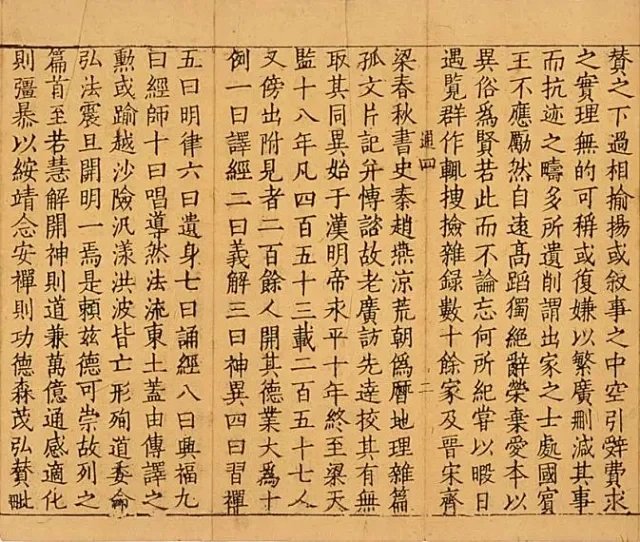 賛之下過相揄揚或叙事之中空引辤費求
之實理無的可稱或復嫌以繁廣刪減其事
而抗迹之疇多所遺削謂出家之士處國賓
王不應勵然自遠高蹈獨絕辭榮棄愛本以
異俗爲賢若此而不論忘何所紀甞以暇日
遇覽群作輒搜撿雜録數十餘家及晉宋齊
通四 二
梁春秋書史秦趙燕涼荒朝僞曆地理雜篇
孤文片記并博諮故老廣訪先達挍其有無
取其同異始于漢明帝永平十年終至梁天
監十八年凡四百五十三載二百五十七人
又傍出附見者二百餘人開其德業大爲十
例一曰譯經二曰義解三曰神異四曰習禪
五曰明律六曰遺身七曰誦經八曰興福九
曰經師十曰唱導然法流東土蓋由傳譯之
勲或踰越沙險汎漾洪波皆亡形殉道委命
弘法震旦開明一焉是賴茲德可崇故列之
篇首至若慧解開神則道兼萬億通感適化
則彊暴以綏靖念安禪則功德森茂弘賛毗